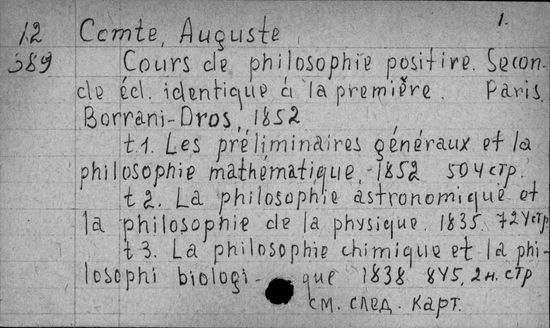 1.
12 Comte, Auguste
389 Cours de philosophie positive. Secon-
de écl. identique à la première. Paris,
Borrani-Dros, 1852
t.1. Les préliminaires généraux et la
philosophie mathématique, 1852 504 стр.
t 2. La philosophie astronomique et
la philosophie de la physique. 1835. 724 стр
t 3. La philosophie chimique et la phi-
losophi biologi- que 1838 845, 2 н. стр
см. след. карт.